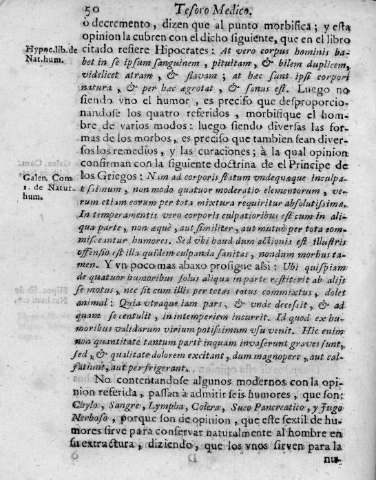 50 Tesoro Medico.
ò decremento, dizen que al punto morbifica; y esta
opinion la cubren con el dicho siguiente, que en el libro
Hypoc. lib. de
Nat. hum.
citado refiere Hipocrates: At vero corpus hominis ha-
bet in se ipsum sanguinem, pituitam, & bilem duplicem,
videlicet atram, & flavam; at hac sunt ipsi corpori
natura, & per hac agrotat, & sanus est. Luego no
siendo vno el humor, es preciso que desproporcio-
nandose los quatro referidos, morbifique el hom-
bre de varios modos: luego siendo diversas las for-
mas de los morbos, es preciso que tambien sean diver-
sos los remedios, y las curaciones; à la qual opinion
confirman con la siguiente doctrina de el Principe de
Galen. Com.
1. de Natur.
hum.
los Griegos: Nam ad corporis statum vndequaque inculpa-
tissimum, non modo quatuor moderatio elementorum, ve-
rum etiam eorum per tota mixtura requiritur absolutissima.
In temperamentis vero corporis culpationibus est cum in ali-
qua parte, non aquè, aut similiter, aut mutuò per tota com-
miscentur humores. Sed vbi haud dum actionis est illustris
offensio est illa quidem culpanda sanitas, nondum morbus ta-
men. Y vn poco mas abaxo prosigue assi: Ubi quispiam
de quatuor humoribus solus aliqua in parte restiterit ab alijs
se motus, nec sit cum illis per totas rotus commixtus, dolet
animal: Quia vtraque iam pars, & vnde decessit, & ad
quam se contulit, in intemperiem incurrit. Id quod ex hu-
moribus validarum virium potissimum vsu venit. Hic enim
non quantitate tantum parti inquam invaserunt graves sunt,
sed, & qualitate dolorem excitant, dum magnopere, aut cal-
faciunt, aut perfrigerant.
No contentandose algunos modernos con la opi-
nion referida, passan à admitir seis humores, que son:
Chylo, Sangre, Lympha, Colera, Suco Pancreatico, y Jugo
Nerboso, porque son de opinion, que este sextil de hu-
mores sirve para conservar naturalmente al hombre en
su extructura, diziendo, que los vnos sirven para la
nu-